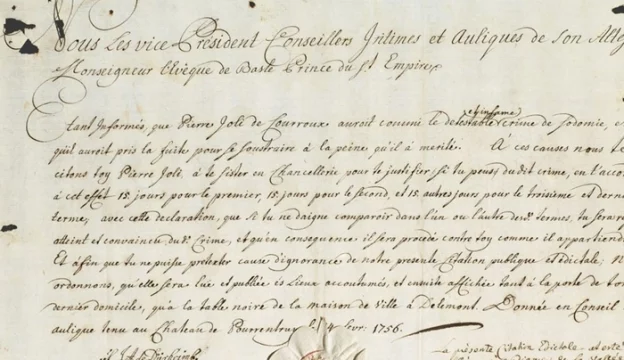 Nous Les vice-Président Conseillers Intimes et Auliques de Son
Monseigneur l'Evêque de Basle Prince du St. Empire
et infame
Etant Informés, que Pierre Joli de Courroux auroit commi le detestable crime de Sodomie,
qu'il auroit pris la fuite pour se soustraire à la peine, qu'il à merité. À ces causes nous te
citons toy Pierre Joli, à te sister en Chancellerie pour te justifier, si tu peus, du dit crime, en
à cet effet 15. jours pour le premier, 15. jours pour le second, et 15. autres jours pour le troisieme et
terme, avec cette declaration, que si tu ne daigne comparoir dans l'un ou l'autre de termes, tu
atteint et convaincu du Crime, et qu'en consequence il sera procedé contre toy comme il
Et àfin que tu ne puisse pretexter cause d'ignorance de notre presente Citation publique et édictale;
ordonnons, qu'elle sera lüe et publiée is Lieux accoutumés, et ensuite affichée tant à la porte de ton
dernier domicile, qu'a la table noire de la maison de Ville à Delemont. Donnée en Conseil
aulique tenu au Chateau de Pourrentruy 1756.